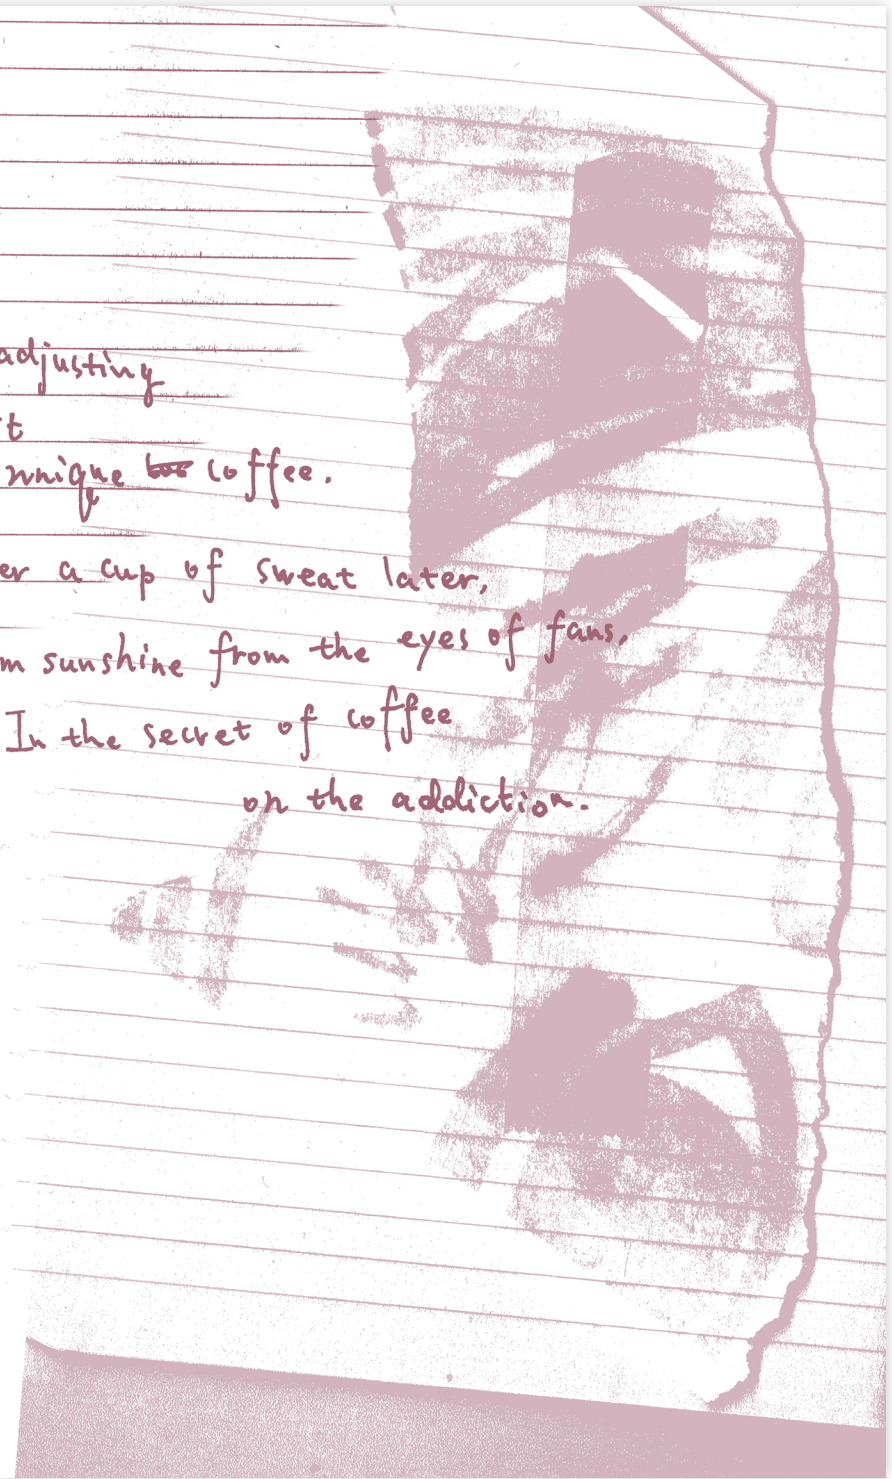 adjusting
t
unique coffee.
er a cup of sweat later,
m sunshine from the eyes of fans,
In the secret of coffee
on the addiction.